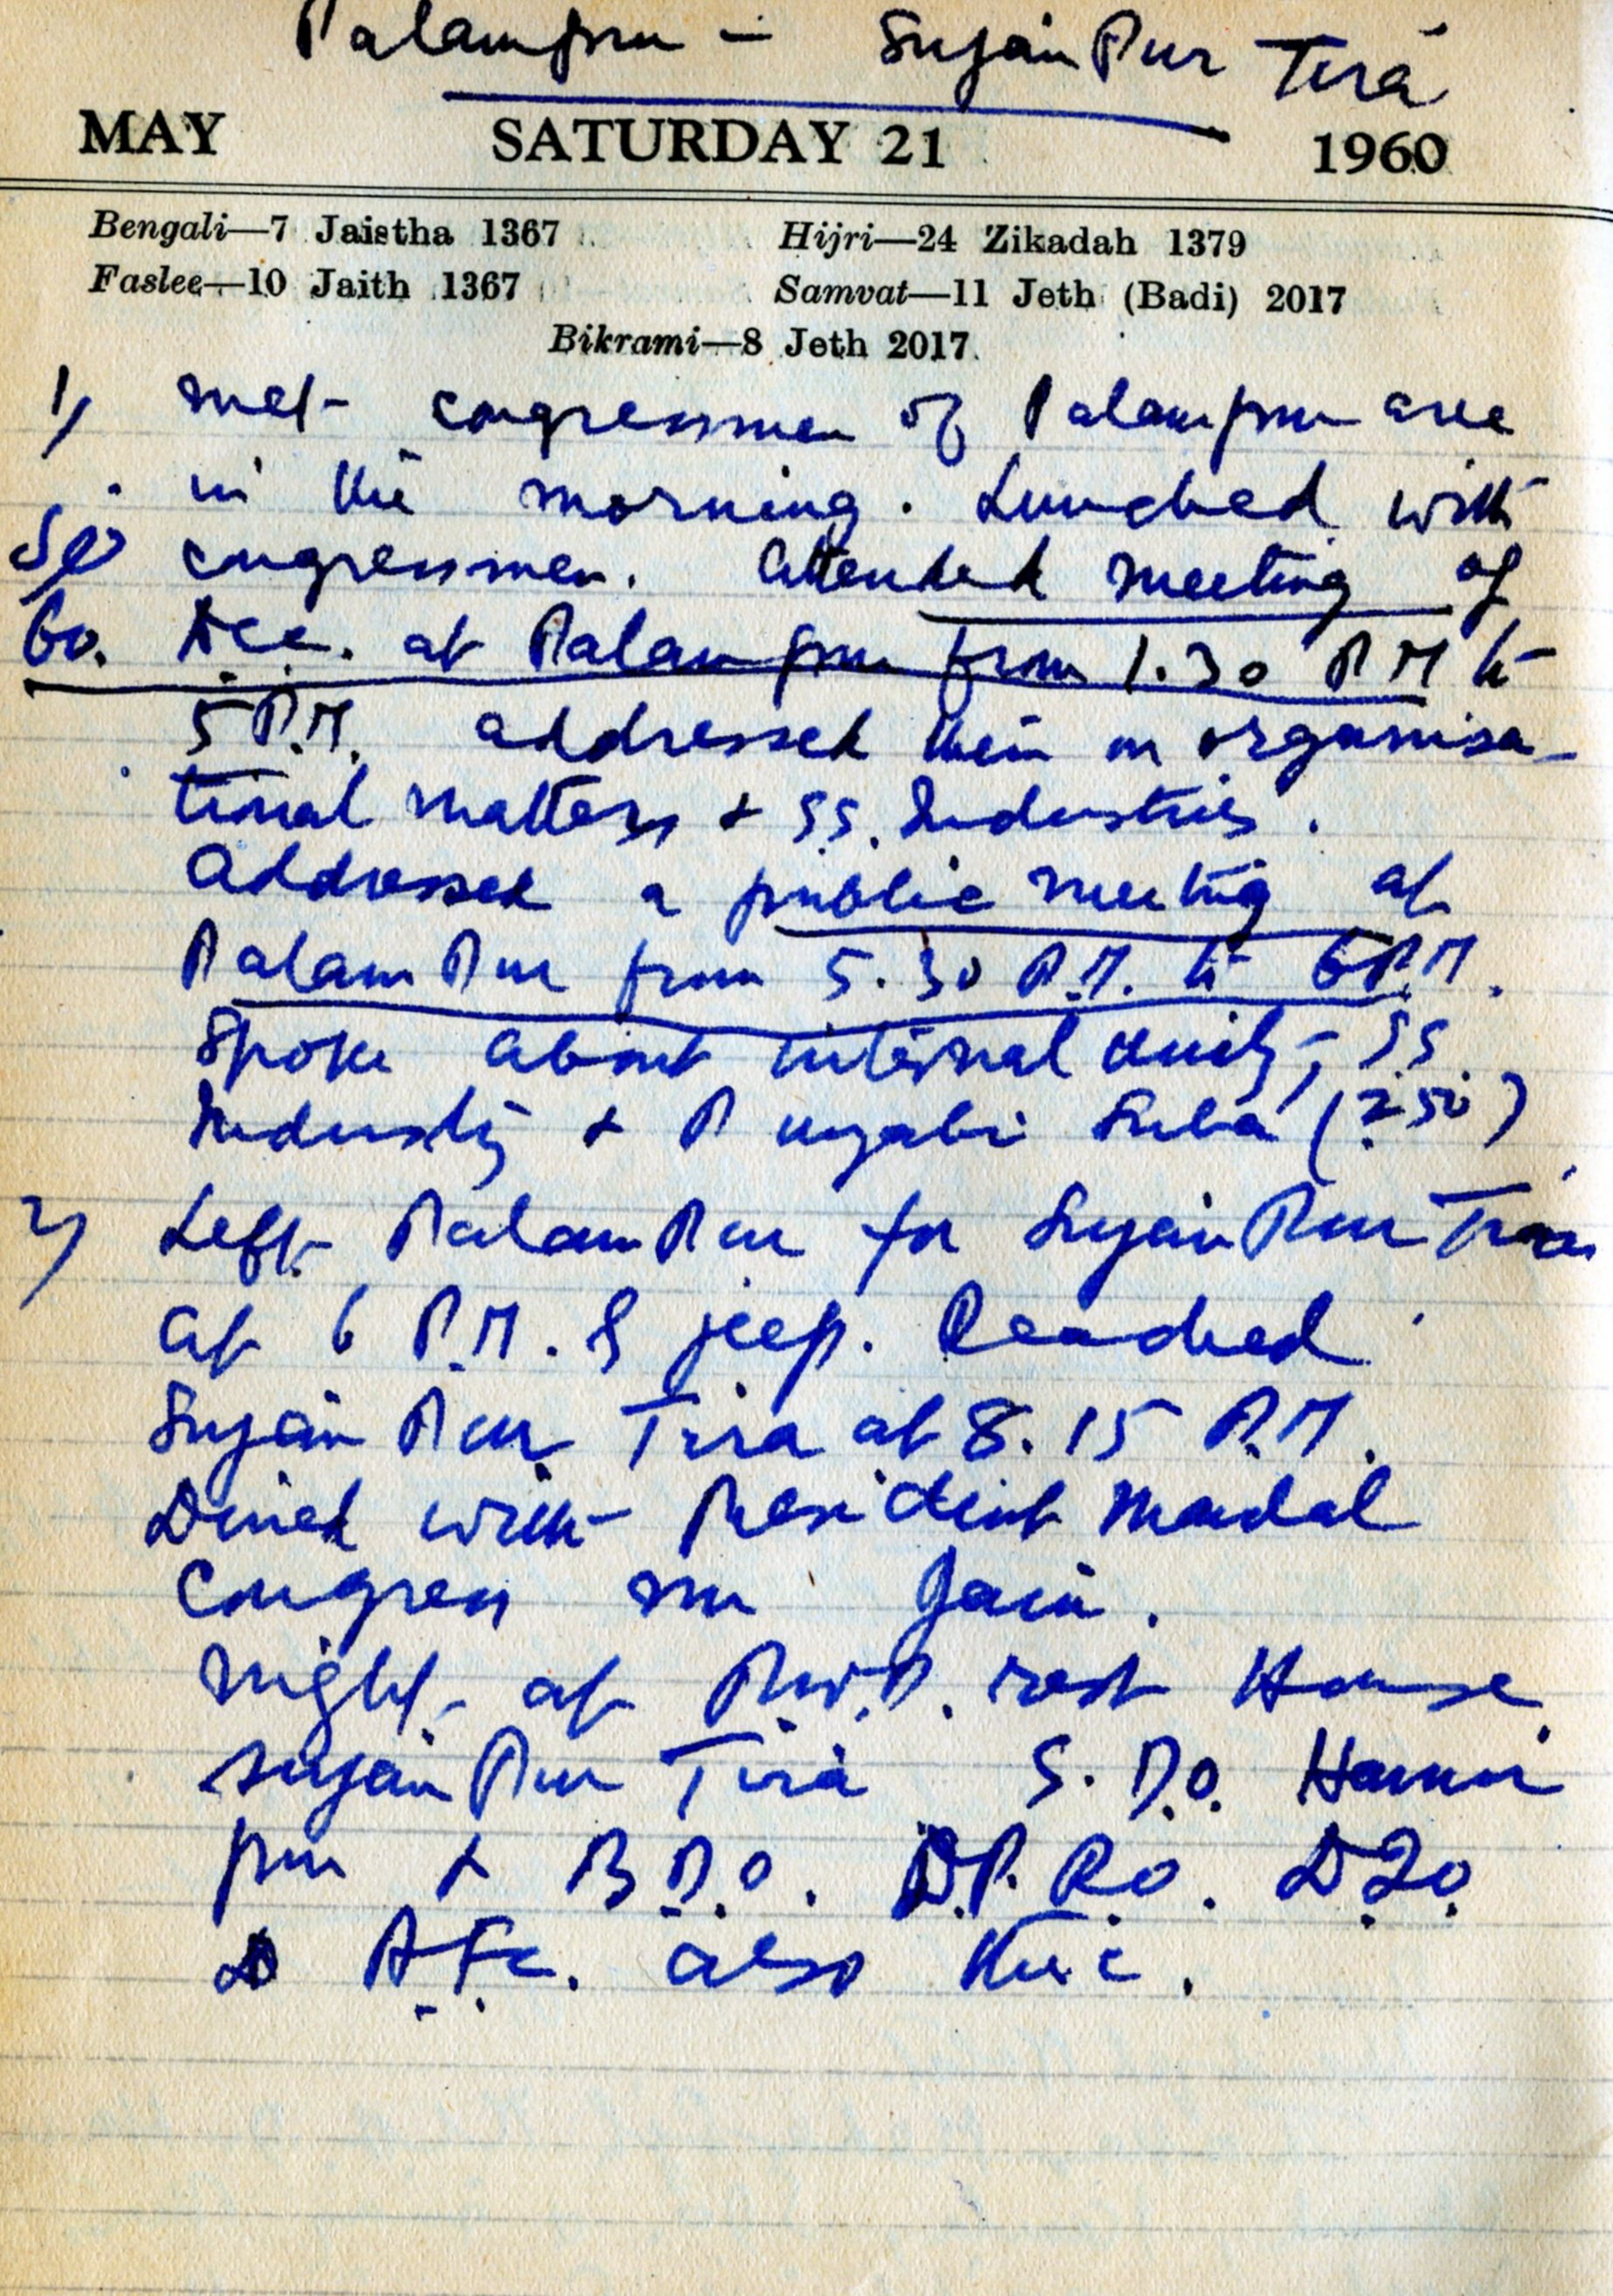 Palampur - Sujan Pur Tira
MAY SATURDAY 21 1960
Bengali—7 Jaistha 1367 Hijri—24 Zikadah 1379
Faslee—10 Jaith 1367 Samvat—11 Jeth (Badi) 2017
Bikrami—8 Jeth 2017.
1) met congressmen of Palampur area
in the morning. Lunched with
congressmen. Attended meeting of
D.C.C. at Palampur from 1.30 P.M to
5 P.M. addressed them on organisa-
tional matters + S.S. Industries.
Addressed a public meeting at
Palam Pur from 5.30 P.M. to 6 P.M.
Spoke about internal unity, S.S.
Industry + Punjabi Suba (250)
2) Left Palam Pur for Sujan Pur Tira
at 6 P.M. by jeep. Reached
Sujan Pur Tira at 8.15 P.M.
Dined with President Mandal
Congress Mr Jain.
night at P.W.D. rest House
Sujan Pur Tira S.D.O. Hamir
pur + B.D.O. D.P.R.O.
also there.